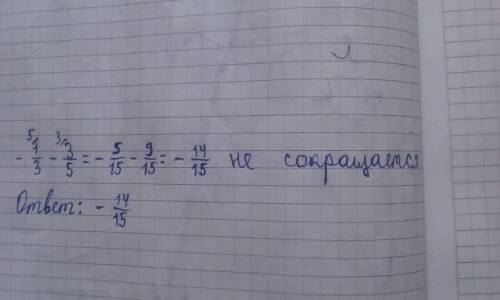 - ⁵⁄1/3 - ³⁄3/5 = - 5/15 - 9/15 = - 14/15 не сокращается
Ответ: - 14/15